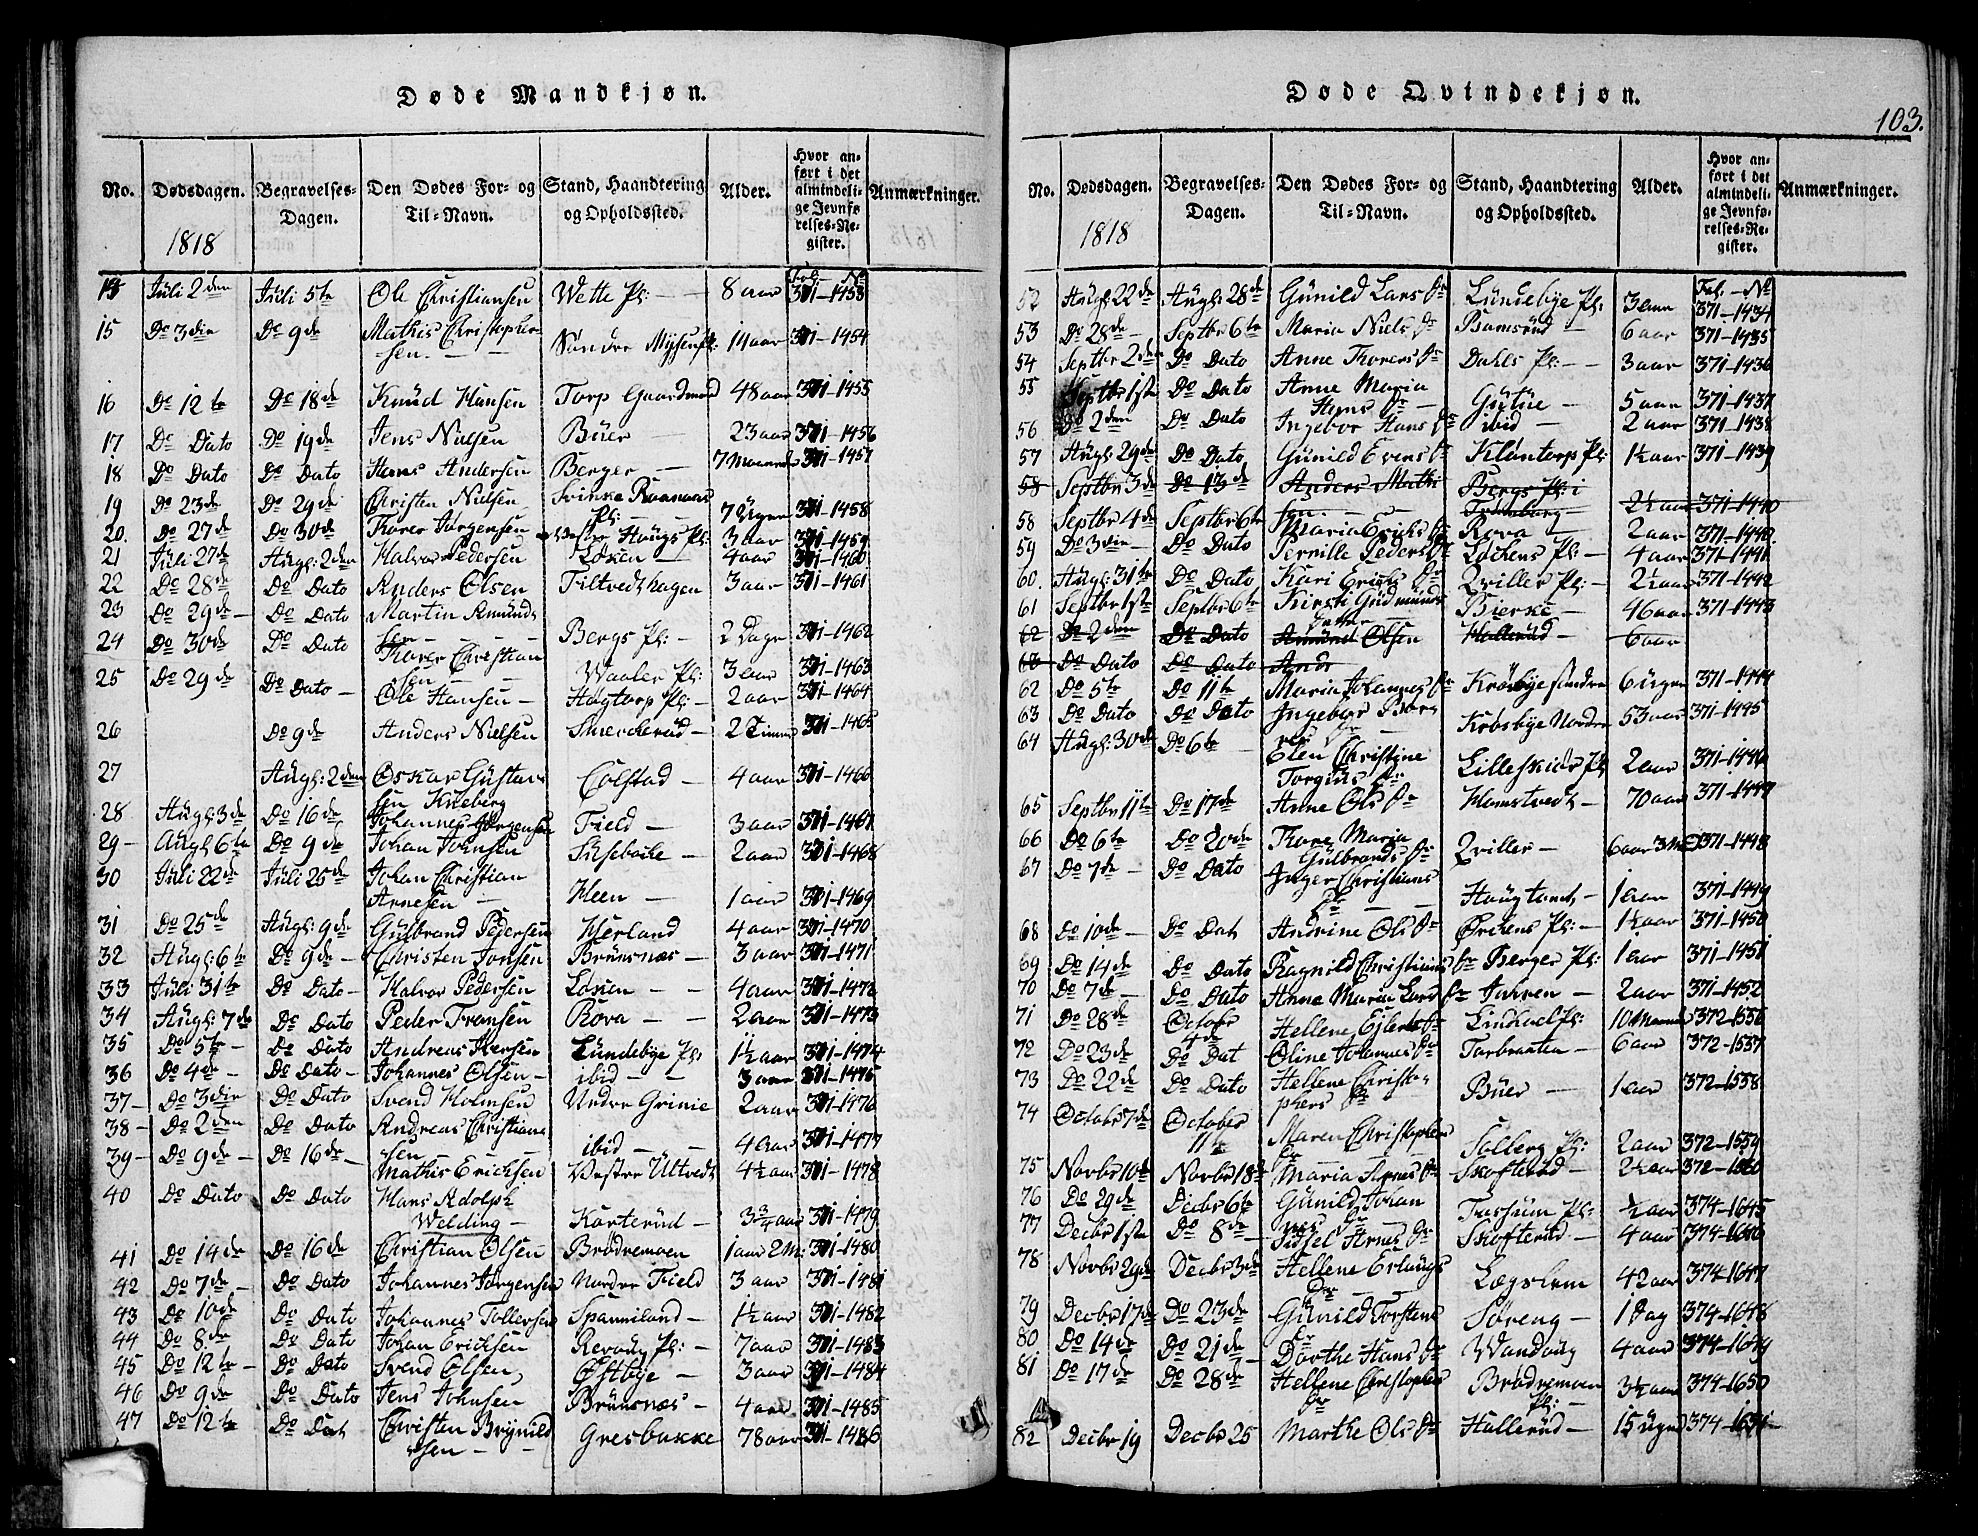 Døde Mandkjøn.
No. Dødsdagen. Begravelses-Dagen. Den Dødes For- og Til-Navn. Stand, Haandtering og Opholdssted. Alder. Hvor anført i det almindelige Jevnførelses-Register. Anmærkninger.
1818
Fol. No
Juli 2den Juli 5te Ole Christiansen Wette Pl: 8 aar 371-1453
15 Do 3die Do 9de Mathis Christophersen Søndre Mysen Pl: 14 aar 371-1454
16 Do 12te Do 18de Knud Hansen Torp Gaardmand 48 aar 371-1455
17 Do Dato Do 19de Jens Nielsen Büer 23 aar 371-1456
18 Do Dato Do Dato Hans Andersen Berger 7 Maaneder 371-1457
19 Do 23de Do 29de Christen Nielsen Svinke Raanaas Pl: 7 Uger 371-1458
20. Do 27de Do 30de Torer Jørgensen Haugs Pl: 3 aar 371-1459
21 Juli 27de Augs: 2den Halvor Pedersen Løsen 4 aar 371-1460
22 Do 28de Do Dato Anders Olsen Tiltvedthagen 3 aar 371-1461
23 Do 29de Do Dato Martin Amundsen Bergs Pl: 2 Dage 371-1462
24 Do 30de Do Dato Torer Christiansen Waaler Pl: 3 aar 371-1463
25 Do 29de Do Dato Ole Hansen Haugtorp Pl: 2 aar 371-1464
26 Do 9de Anders Nielsen Smerkerud 2 Timer 371-1465
27 Augs: 2den Oskar Gustavsen Kneberg Colstad 4 aar 371-1466
28 Augs: 3de Do 16de Johannes Jørgensen Field 3 aar 371-1467
29 Augs 6te Do 9de Johan Johnsen Siseboke 2 aar 371-1468
30 Juli 22de Juli 25de Johan Christian Arnesen Heen 1 aar 371-1469
31 Do 25de Augs: 9de Gulbrand Pedersen Herland 4 aar 371-1470
32 Augs: 6te Do 9de Christen Jonsen Brunsnæs 3 aar 371-1471
33 Juli 31te Do Dato Halvor Pedersen Løsen 4 aar 371-1472
34 Augs: 7de Do Dato Peder Fransen Rova 2 aar 371-1473
35 Do 5te Do Dato Andreas Iversen Lundebye Pl: 1½ aar 371-1474
36 Do 4de Do Dato Johannes Olsen ibid 3 aar 371-1475
37 Do 3die Do Dato Svend Holmsen Undre Grinie 2 aar 371-1476
38 Do 2den Do Dato Andreas Christiansen ibid 4 aar 371-1477
39 Do 9de Do 16de Mathis Erichsen Vestre Ultvedt 4½ aar 371-1478
40 Do Dato Do Dato Hans Adolph Welding Karterud 3¾ aar 371-1479
41 Do 14de Do 16de Christian Olsen Brødremoen 1 aar 2 M: 371-1480
42 Do 7de Do Dato Johannes Jørgensen Nordre Field 3 aar 371-1481
43 Do 10de Do Dato Johannes Tollefsen Spanniland 1½ aar 371-1482
44 Do 8de Do Dato Johan Erichsen Revoug Pl: 7 aar 371-1483
45 Do 12te Do Dato Svend Olsen Østbye 3 aar 371-1484
46 Do 9de Do Dato Jens Johnsen Brunsnæs 4 aar 371-1485
47 Do 12te Do Dat Christen Brynildsen Gresbakke 78 aar 371-1486
Døde Qvindekjøn.
103.
No. Dødsdagen. Begravelses-Dagen. Den Dødes For- og Til-Navn. Stand, Haandtering og Opholdssted. Alder. Hvor anført i det almindelige Jevnførelses-Register. Anmærkninger.
1818
Fol. No
52 Augs: 22de Augs: 28de Gunild Lars Dr Lundebye Pl: 3 aar 371-1434
53 Do 28de Septbr 6te Maria Niels Dr Ramsrud 6 aar 371-1435
54 Septbr 2den Do Dato Anne Torers Dr Dahls Pl: 3 aar 371-1436
55 Septbr 1ste Do Dato Anne Maria Hans Dr Gutue 5 aar 371-1437
56 Do 2den Do Dato Ingebor Hans Dr ibid 2 aar 371-1438
57 Augs: 29de Do Dato Gunild Evens Dr Klontorp Pl: 1½ aar 371-1439
58 Septbr 3de Do 13de Anders Mathisen Bergs Pl: i 2½ aar 371-1440
58 Septbr 4de Septbr 6te Maria Erichs Dr Rova 2 aar 371-1440
59 Do 3die Do Dato Pernille Peders Dr Lochens Pl: 4 aar 371-1441
60. Augs: 31te Do Dato Kari Erichs Dr Qviller Pl: 2½ aar 371-1442
61 Septbr 1ste Septbr 6te Kirsti Gudmunds Datter Bierke 46 aar 371-1443
62 Do 2den Do Dato Amund Olsen Hallerud 6 aar
63 Do Dato Do Dato Andr
62 Do 5te Do 11te Maria Johannes Dr Krosbye søndre 6 Uger 371-1444
63 Do Dato Do Dato Ingebor Borgers Dr Krosbye Nordre 53 aar 371-1445
64 Augs: 30de Do 6te Elen Christine Torgius Dr Lilleskies Pl: 2 aar 371-1446
65 Septbr 11te Do 17de Anne Ols Dr Homstvedt 70 aar 371-1447
66 Do 6te Do 20de Tore Maria Gulbrands Dr Qviller 6 aar 3 M 371-1448
67 Do 7de Do Dato Inger Christians Dr Haugland 1 aar 371-1449
68 Do 10de Do Dat Andrine Ols Dr Ørchens Pl: 1½ aar 371-1450
69 Do 14de Do Dato Ragnild Christians Dr Berger Pl: 1 aar 371-1451
70 Do 7de Do Dato Anne Maria Lars Dr Jahren 2 aar 371-1452
71 Do 28de Octobr 4de Hellene Ejlerts Dr Lindhoel Pl: 10 Maaneder 372-1556
72 Do 23de Do Dat Oline Johannes Dr Torbraaten 6 aar 372-1557
73 Do 22de Do Dato Hellene Christophers Dr Büer 1 aar 372-1558
74 Octobr 7de October 11te Maren Christophers Dr Solberg Pl: 2 aar 372-1559
75 Novbr 10de Novbr 18de Maria Arnes Dr Skofterud 2½ aar 372-1560
76 Do 29de Decbr 6te Gunild Johannes Dr Tussum Pl: ½ aar 374-1645
77 Decbr 1ste Do 8de Sidsel Arnes Dr Skofterud 4 aar 374-1646
78 Novbr 29de Decbr 3de Hellene Erlings Dr Løgslem 42 aar 374-1647
79 Decbr 17de Do 23de Gunild Torstens Dr Søreng 1 Dag 374-1648
80 Do 14de Do 21de Dorthe Hans Dr Wandoug 4 aar 374-1649
81 Do 17de Do 28de Hellene Christophers Dr Brødremoen Pl: 3½ aar 374-1650
82 Decbr 19 Decbr 25 Marthe Ols Dr Hallerud 15 Uger 374-1651